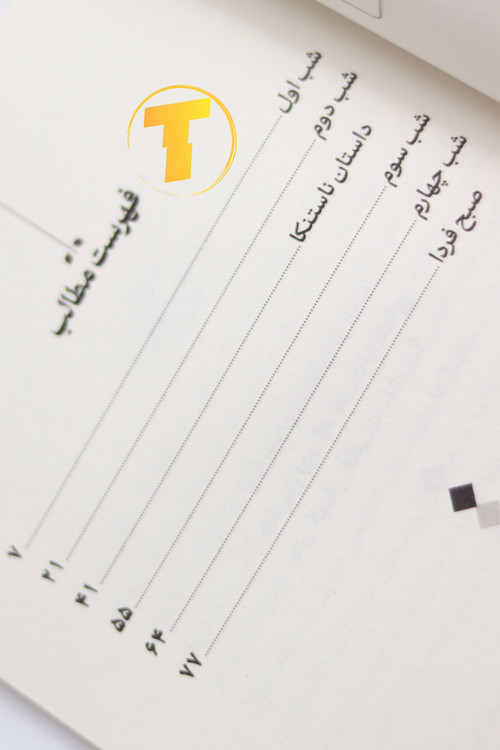 فهرست مطالب
شب اول ۷
شب دوم ۲۱
داستان ناستنکا ۴۱
شب سوم ۵۵
شب چهارم ۶۴
صبح فردا ۷۷
T